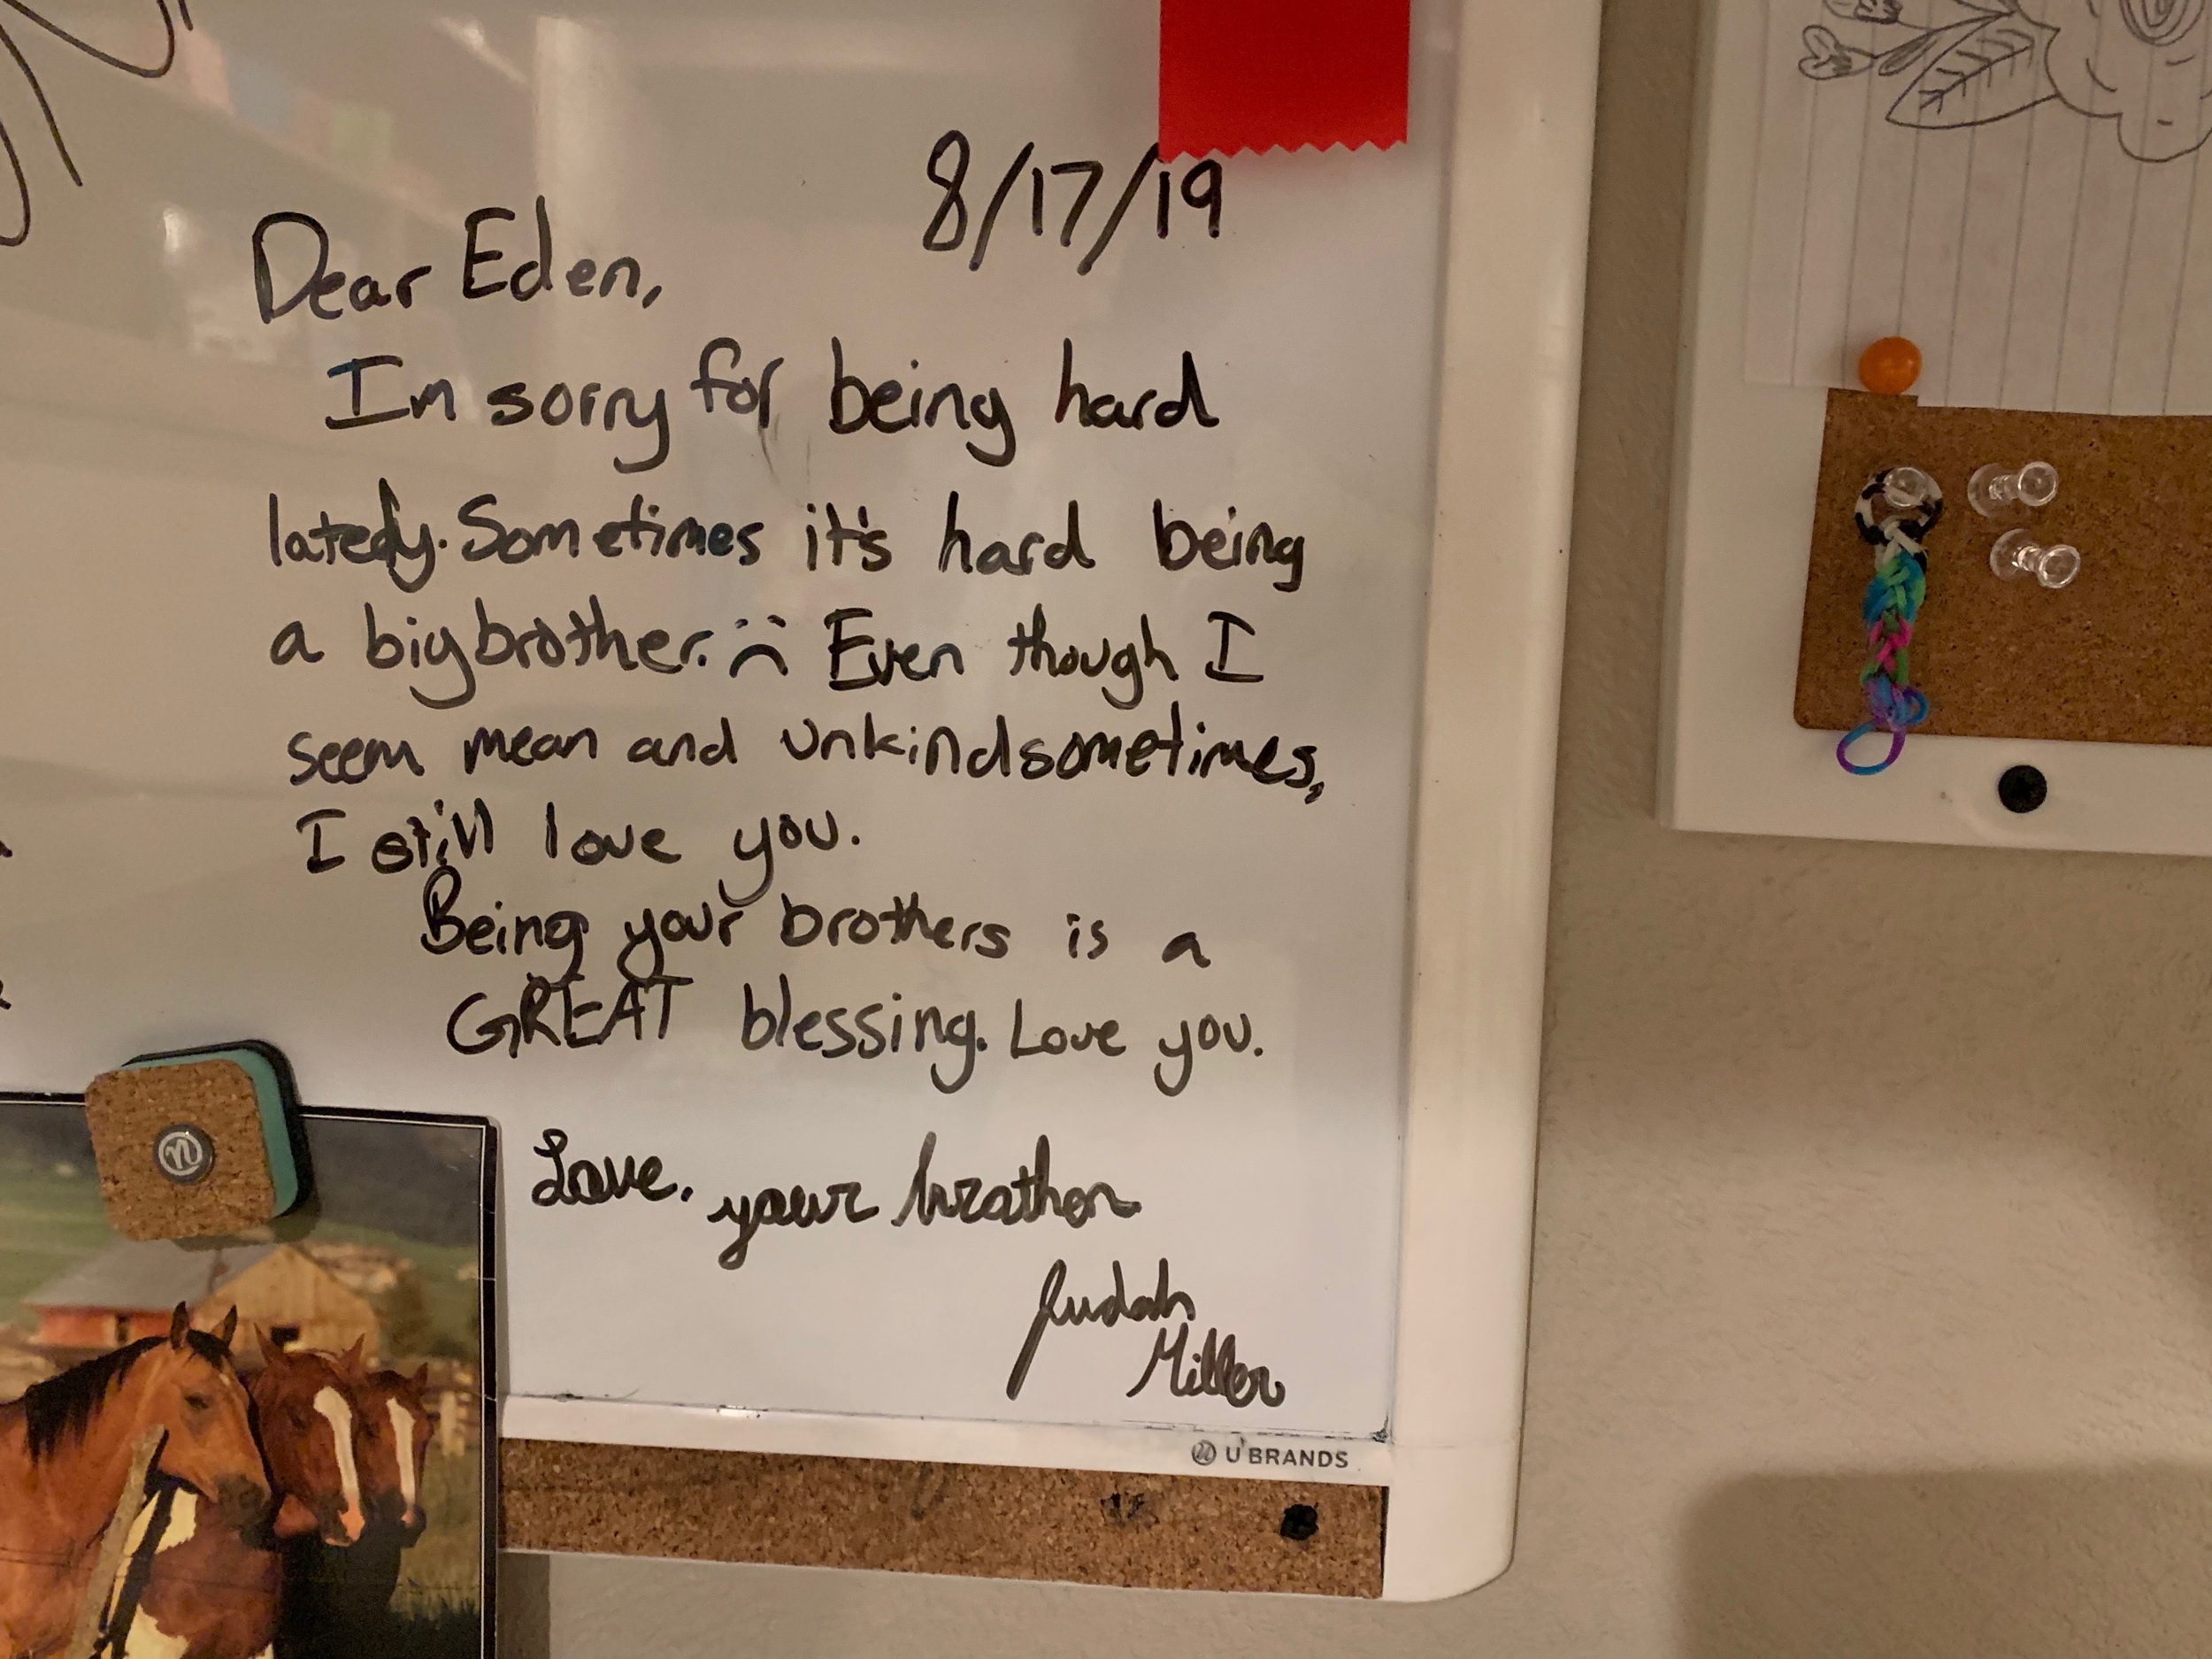 8/17/19
Dear Eden,
Im sorry for being hard
lately. Sometimes it's hard being
a big brother. :( Even though I
seem mean and unkind sometimes,
I still love you.
Being your brothers is a
GREAT blessing. Love you.
Love, your brother
Judah
Miller
U BRANDS